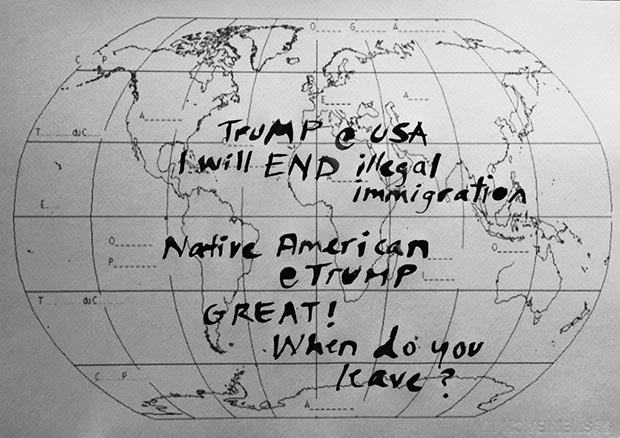 O____ G____ A____
C____P____
A_____
E____
A_____
T........duC........
TRUMP @ USA
I will END illegal
immigration
E....
O______
P______
O______
I____
Native American
@ TRUMP
T........duC........
GREAT!
When do you
leave?
C____P____
A_____